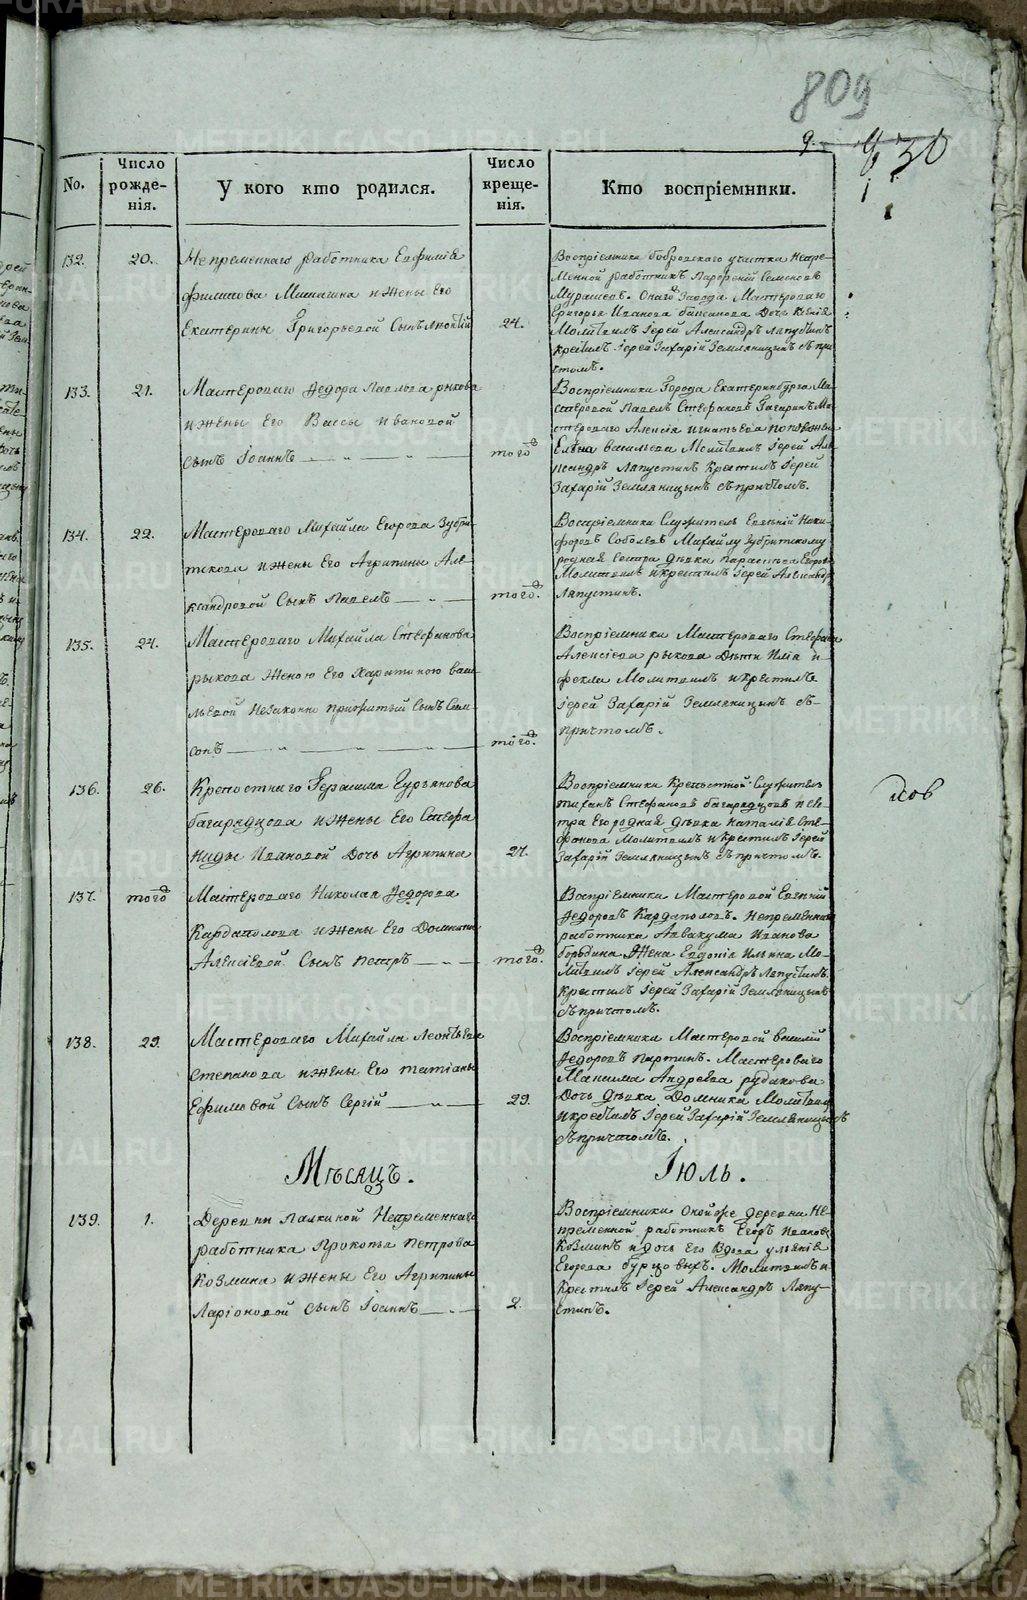 809
9.
930
No.
Число рожденія.
У кого кто родился.
Число крещенія.
Кто воспріемники.
132.
20.
Непременнаго работника Евфимія
Филипова Мишагина и жены Его
Екатерины Григорьевой Сынъ
24.
Воспріемники бобровскаго участка Непре-
менной работникъ Парфеній Семеновъ
Мурашевъ. Онаго завода Мастероваго
Григорья Иванова Дочь Ксенія
Молитвилъ Іерей Александръ Ляпустинъ
крестилъ Іерей Захарій Земляницынъ съ при
чтомъ.
133.
21.
Мастероваго Федора Павлова рыкова
и жены Его Вассы Ивановой
Сынъ Іоаннъ
того
Воспріемники Города Екатеринбурга Ма-
стеровой Павелъ Стефановъ Гагаринъ Ма-
стероваго Алексія Игнатьева
Елена васильева Молитвилъ Іерей Але-
ксандръ Ляпустинъ Крестилъ Іерей
Захарій Земляницынъ съ причтомъ.
134.
22.
Мастероваго Михайла Егорова Зубри-
тскова и жены Его Агрипины Але-
ксандровой Сынъ Павелъ
того.
Воспріемники Служитель Евгеній Ники-
форовъ Соболевъ Михайлу Зубритскому
родная сестра девка Параскева Егорова
Молитвилъ и крестилъ Іерей Александръ
Ляпустинъ.
135.
24.
Мастероваго Михайла Стефанова
рыкова Женою Его Харитиною васи-
льевой Незаконно прижитый Сынъ Сам-
сонъ
того.
Воспріемники Мастероваго Стефана
Алексіева рыкова Дети Илія и
фекла Молитвилъ и крестилъ
Іерей Захарій Земляницынъ съ
причтомъ.
136.
26.
Крепостнаго Герасима Гурьянова
багарядцова и жены Его Стефа
ниды Ивановой Дочь Агрипина
27.
Воспріемники Крепостной Служитель
тиханъ Стефановъ багарядцовъ и се-
стра Его родная девка наталія Сте-
фанова Молитвилъ и крестилъ Іерей
Захарій Земляницынъ съ причтомъ.
137.
того
Мастероваго Николая Федорова
Кардаполова и жены Его Домники
Алексіевой Сынъ Петръ
того.
Воспріемники Мастеровой Евгеній
Федоровъ Кардаполовъ. Непременнаго
работника Аввакума Иванова
бородина Жена Евдокія Ильина Мо-
литвилъ Іерей Александръ Ляпустинъ.
Крестилъ Іерей Захарій Земляницынъ
съ причтомъ.
138.
29.
Мастероваго Михайла Леонтьева
Степанова и жены Его татіаны
Ефимовой Сынъ Сергій
29.
Воспріемники Мастеровой василій
Федоровъ Партинъ. Мастероваго
Максима Андреева рудакова
Дочь девка Домника Молитвилъ
и крестилъ Іерей Захарій Земляницынъ
съ причтомъ.
Мѣсяцъ.
Іюль.
139.
1.
Деревни Палкиной Непременнаго
работника Прокопья Петрова
Козмина и жены Его Агрипины
Ларіоновой сынъ Іоаннъ
2.
Воспріемники Оной же деревни Не-
пременной работникъ Егоръ Ивановъ
Козминъ и дочь Его Вдова ульянія
Егорова бурцовыхъ. Молитвилъ и
Крестилъ Іерей Александръ Ляпу-
стинъ.
METRIKI.GASO-URAL.RU